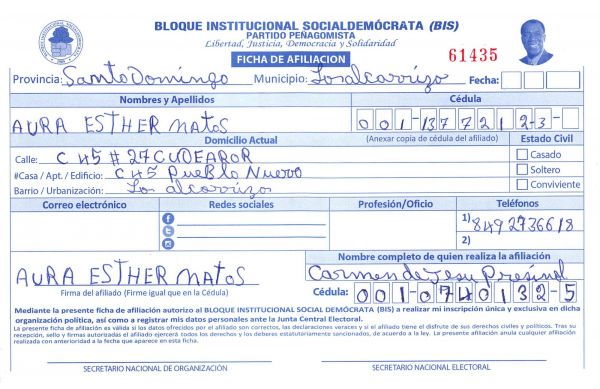 BLOQUE INSTITUCIONAL SOCIALDEMÓCRATA (BIS)
PARTIDO PEÑAGOMISTA
Libertad, Justicia, Democracia y Solidaridad
FICHA DE AFILIACION
61435
Provincia: Santo Domingo Municipio: Los alcarrizo Fecha:
Nombres y Apellidos Cédula
AURA ESTHER MATOS 001-1377212-3-
Domicilio Actual (Anexar copia de cédula del afiliado) Estado Civil
Calle: C 45 # 27 Casado
#Casa / Apt. / Edificio: C 45 PUEBLO NUEVO Soltero
Barrio / Urbanización: Los alcarrizos Conviviente
Correo electrónico Redes sociales Profesión/Oficio Teléfonos
1) 8492736618
2)
Nombre completo de quien realiza la afiliación
AURA ESTHER MATOS Carmen de Jesu Presinal
Firma del afiliado (Firme igual que en la Cédula) Cédula: 001-0740132-5
Mediante la presente ficha de afiliación autorizo al BLOQUE INSTITUCIONAL SOCIAL DEMÓCRATA (BIS) a realizar mi inscripción única y exclusiva en dicha
organización política, así como a registrar mis datos personales ante la Junta Central Electoral.
La presente ficha de afiliación es válida si los datos ofrecidos por el afiliado son correctos, las declaraciones veraces y si el afiliado tiene el disfrute de sus derechos civiles y políticos. Tras su
recepción, sello y firma autorizadas el afiliado ejercerá todos los derechos y los deberes estatutariamente sancionados, de acuerdo a la ley. La presente afiliación anula cualquier afiliación
realizada con anterioridad a la fecha que aparece en esta ficha.
SECRETARIO NACIONAL DE ORGANIZACIÓN SECRETARIO NACIONAL ELECTORAL